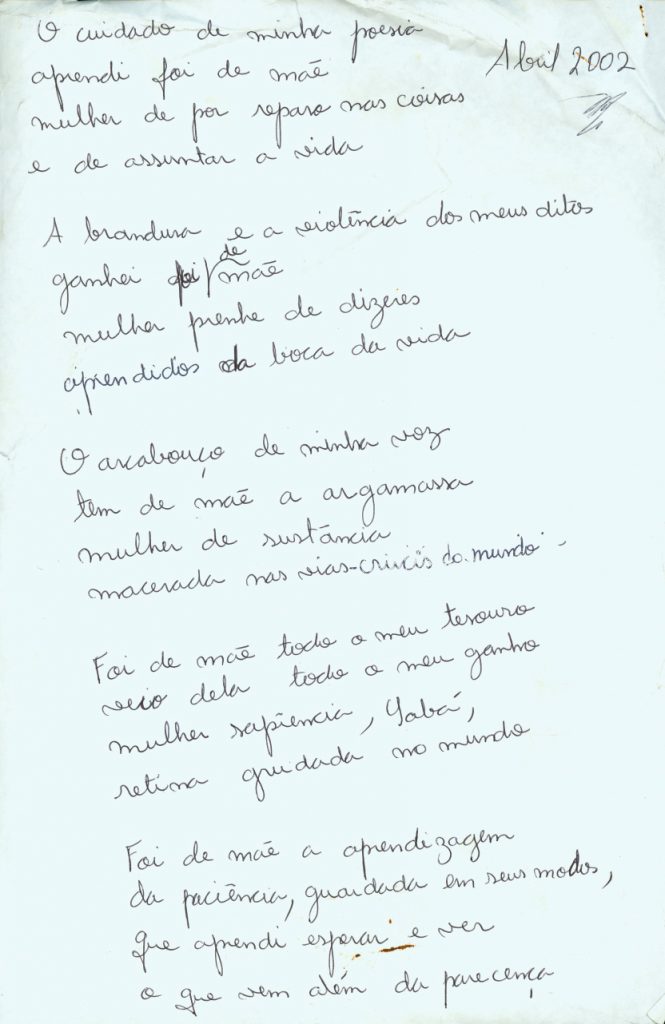 O cuidado de minha poesia
Abril 2002
aprendi foi de mãe
mulher de por reparo nas coisas
e de assuntar a vida
A brandura e a violência dos meus ditos
ganhei foi de mãe
mulher prenhe de dizeres
aprendidos da boca da vida
O arcabouço de minha voz
tem de mãe a argamassa
mulher de sustância
macerada nas vias-crucis do mundo
Foi de mãe todo o meu tesouro
veio dela todo o meu ganho
mulher sapiência, Yabá,
retina grudada no mundo
Foi de mãe a aprendizagem
da paciência, guardada em seus modos,
que aprendi esperar e ver
o que vem além da parecença